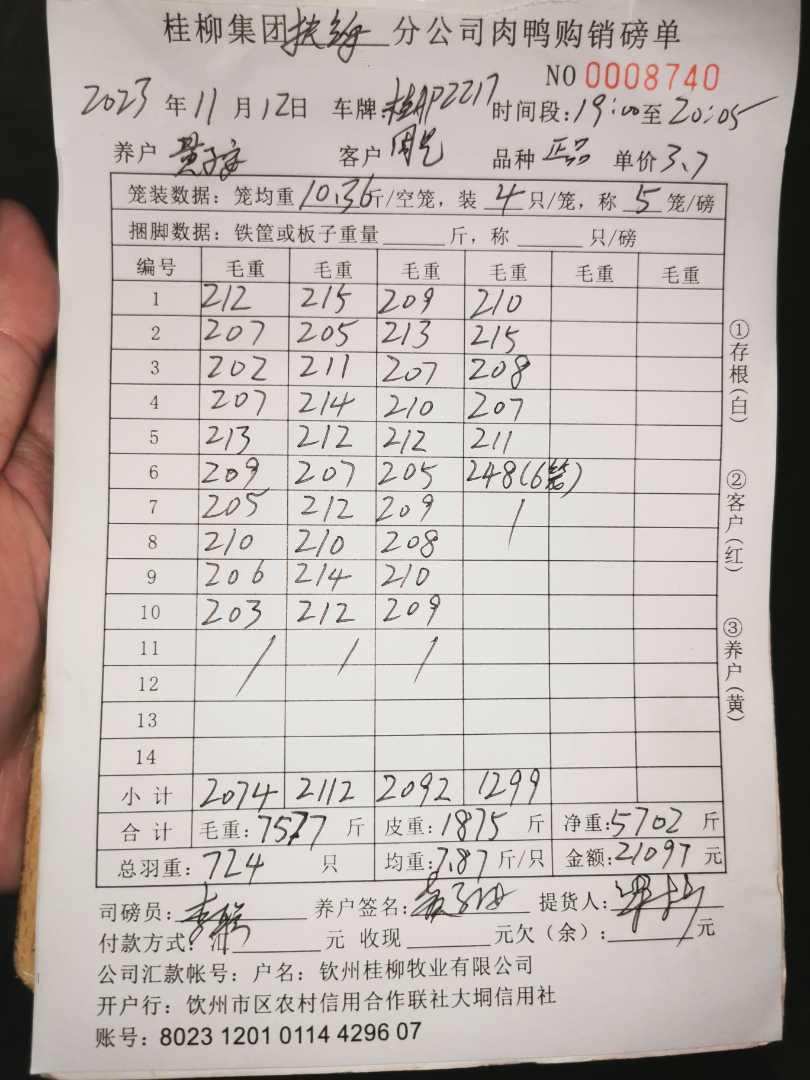 桂柳集团扶绥分公司肉鸭购销磅单
NO 0008740
2023年11月12日 车牌:桂AP2217 时间段:19:00至20:05
养户 黄 客户 周 品种 正品 单价 3.7
笼装数据: 笼均重 10.36斤/空笼, 装 4 只/笼, 称 5 笼/磅
捆脚数据: 铁筐或板子重量______斤, 称______只/磅
编号 毛重 毛重 毛重 毛重 毛重 毛重
1 212 215 209 210
2 207 205 213 215
3 202 211 207 208
4 207 214 210 207
5 213 212 212 211
6 209 207 205 248(6笼)
7 205 212 209 /
8 210 210 208
9 206 214 210
10 203 212 209
11 / / /
12
13
14
小计 2074 2112 2092 1299
合计 毛重:7577斤 皮重:1875斤 净重:5702斤
总羽重:724只 均重:7.87斤/只 金额:21097元
司磅员: 养户签名: 提货人:
付款方式:汇______元 收现______元欠(余):______元
公司汇款帐号: 户名: 钦州桂柳牧业有限公司
开户行: 饮州市区农村信用合作联社大垌信用社
账号: 8023 1201 0114 4296 07
①存根(白)
②客户(红)
③养户(黄)